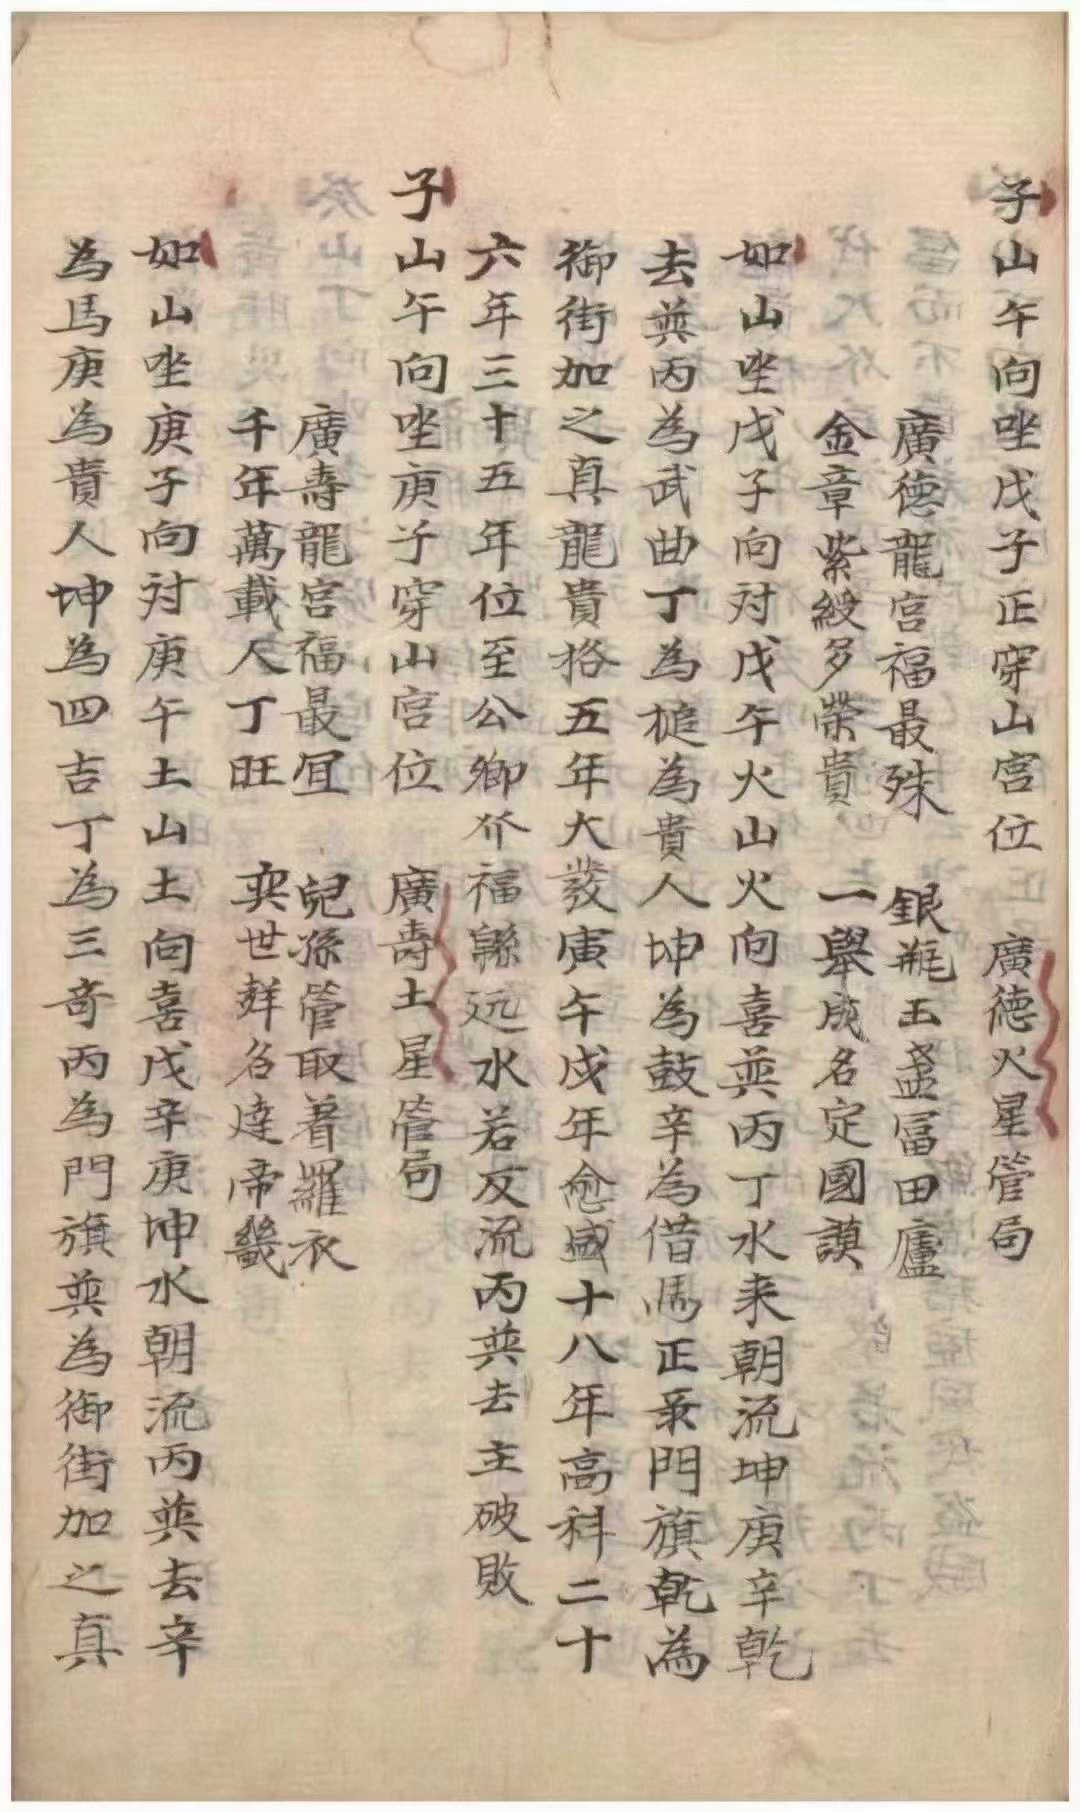 子山午向坐戊子正穿山宫位 廣德火星管局
廣德龍宫福最殊 銀瓶玉盞冨田廬
金章紫綬多榮貴 一舉成名定國謨
如山坐戊子向对戊午火山火向喜巽丙丁水来朝流坤庚辛乾
去巽丙為武曲丁為槌為貴人坤為鼓辛為借馬正最門旗乾為
御街加之真龍貴格五年大發寅午戌年愈盛十八年高科二十
六年三十五年位至公卿介福緜远水若反流丙巽去主破敗
子山午向坐庚子穿山宫位 廣壽土星管局
廣壽龍宫福最宜 兒孫管取着羅衣
千年萬載人丁旺 奕世群名達帝畿
如山坐庚子向对庚午土山土向喜戊辛庚坤水朝流丙巽去辛
為馬庚為貴人坤為四吉丁為三奇丙為門旗巽為御街加之真